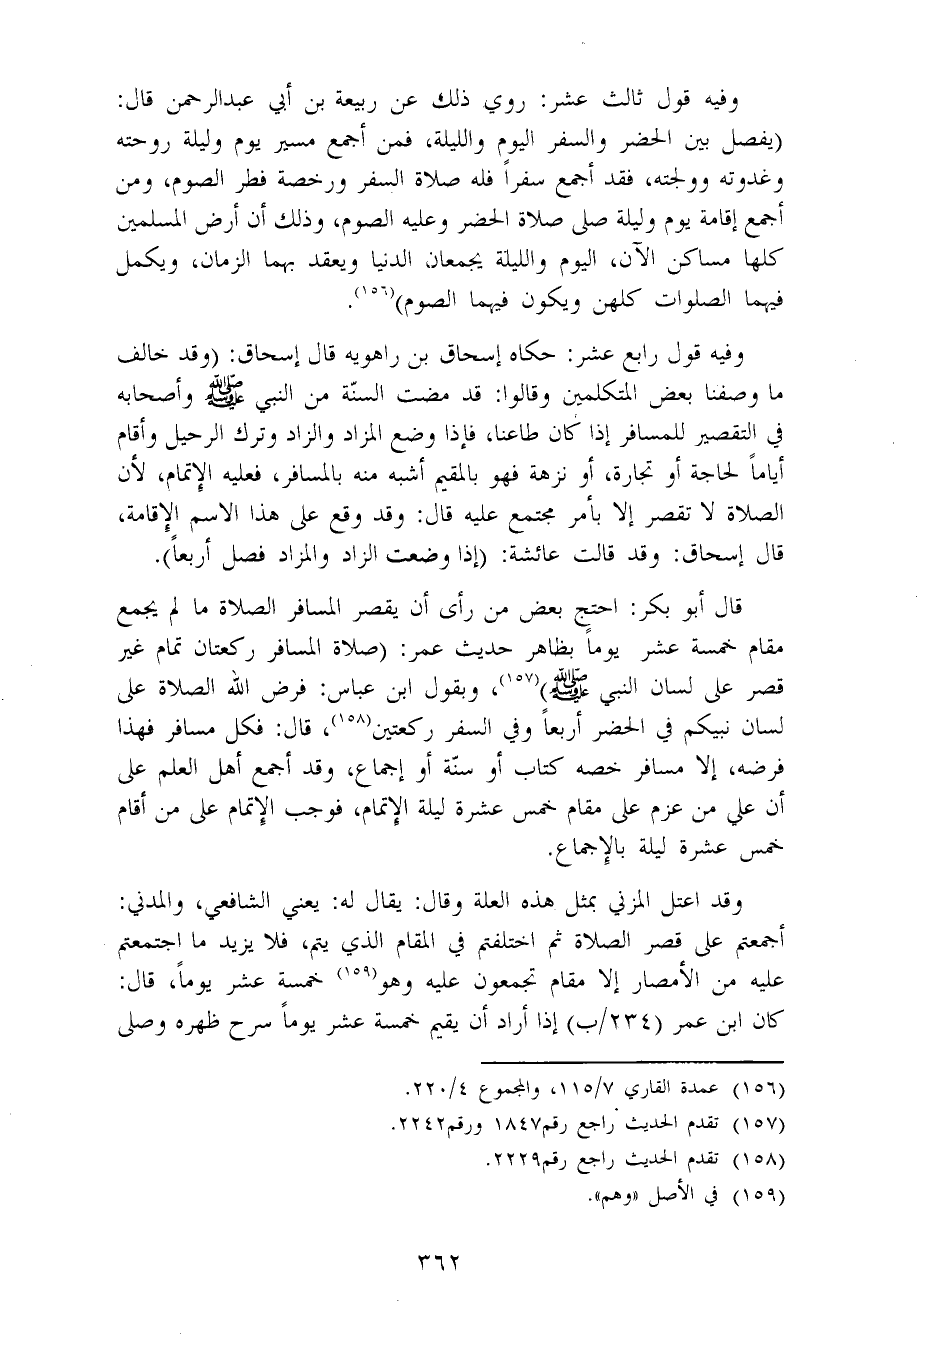 وفيه قول ثالث عشر: روي ذلك عن ربيعة بن أبي عبدالرحمن قال:
(يفصل بين الحضر والسفر اليوم والليلة، فمن أجمع مسير يوم وليلة روحته
وغدوته وولجته، فقد أجمع سفراً فله صلاة السفر ورخصة فطر الصوم، ومن
أجمع إقامة يوم وليلة صلى صلاة الحضر وعليه الصوم، وذلك أن أرض المسلمين
كلها مساكن الآن، اليوم والليلة يجمعان الدنيا ويعقد بهما الزمان، ويكمل
فيهما الصلوات كلهن ويكون فيهما الصوم)(١٥٦).
وفيه قول رابع عشر: حكاه إسحاق بن راهويه قال إسحاق: (وقد خالف
ما وصفنا بعض المتكلمين وقالوا: قد مضت السنّة من النبي ﷺ وأصحابه
في التقصير للمسافر إذا كان طاعنا، فإذا وضع المزاد والزاد وترك الرحيل وأقام
أياماً لحاجة أو تجارة، أو نزهة فهو بالمقيم أشبه منه بالمسافر، فعليه الإتمام، لأن
الصلاة لا تقصر إلا بأمر مجتمع عليه قال: وقد وقع على هذا الاسم الإقامة،
قال إسحاق: وقد قالت عائشة: (إذا وضعت الزاد والمزاد فصل أربعاً).
قال أبو بكر: احتج بعض من رأى أن يقصر المسافر الصلاة ما لم يجمع
مقام خمسة عشر يوماً بظاهر حديث عمر: (صلاة المسافر ركعتان تمام غير
قصر على لسان النبي ﷺ)(١٥٧)، وبقول ابن عباس: فرض الله الصلاة على
لسان نبيكم في الحضر أربعاً وفي السفر ركعتين(١٥٨)، قال: فكل مسافر فهذا
فرضه، إلا مسافر خصه كتاب أو سنّة أو إجماع، وقد أجمع أهل العلم على
أن علي من عزم على مقام خمس عشرة ليلة الإتمام، فوجب الإتمام على من أقام
خمس عشرة ليلة بالإجماع.
وقد اعتل المزني بمثل هذه العلة وقال: يقال له: يعني الشافعي، والمدني:
أجمعتم على قصر الصلاة ثم اختلفتم في المقام الذي يتم، فلا يزيد ما اجتمعتم
عليه من الأمصار إلا مقام تجمعون عليه وهو(١٥٩) خمسة عشر يوماً، قال:
كان ابن عمر (٢٣٤/ب) إذا أراد أن يقيم خمسة عشر يوماً سرح ظهره وصلى
(١٥٦) عمدة القاري ١١٥/٧، والمجموع ٢٢٠/٤.
(١٥٧) تقدم الحديث راجع رقم١٨٤٧ ورقم٢٢٤٢.
(١٥٨) تقدم الحديث راجع رقم٢٢٢٩.
(١٥٩) في الأصل «وهم».
٣٦٢